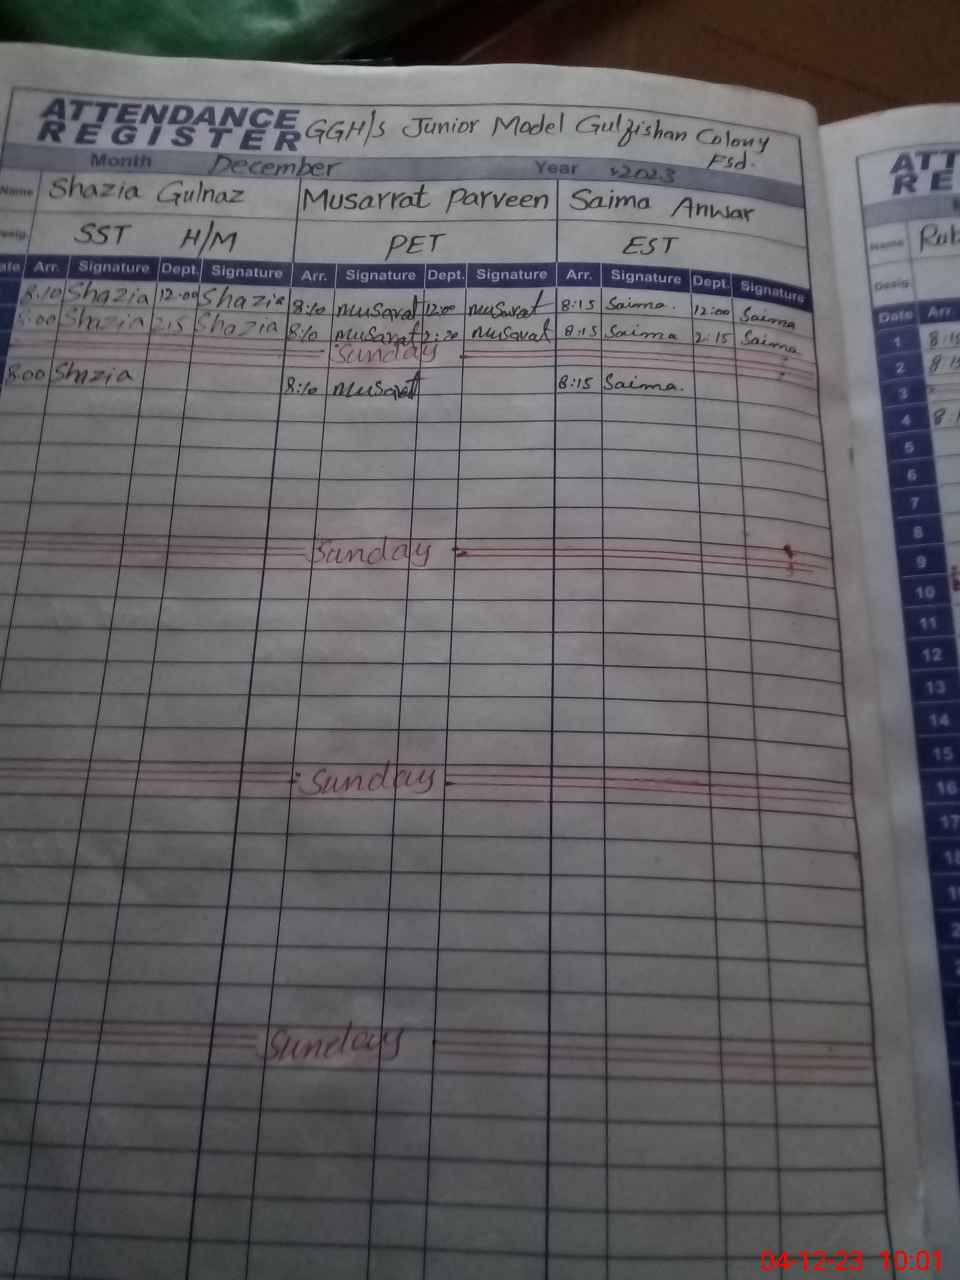 ATTENDANCE REGISTER GGH/S Junior Model Gulfishan Colony Fsd.
Month December Year 2023
Name Shazia Gulnaz Musarrat Parveen Saima Anwar
Desig. SST H/M PET EST
Date Arr. Signature Dept. Signature Arr. Signature Dept. Signature Arr. Signature Dept. Signature
8:10 Shazia 12:00 Shazia 8:10 Musarat 12:00 Musarat 8:15 Saima. 12:00 Saima
8:00 Shazia 2:15 Shazia 8:10 Musarat 2:20 Musarat 8:15 Saima 2:15 Saima
Sunday
8:00 Shazia 8:10 Musarat 8:15 Saima.
Sunday
Sunday
Sunday
ATT
RE
Name Rub
Desig.
Date Arr
1 8:15
2 8:15
3
4 8:1
5
6
7
8
9
10
11
12
13
14
15
16
17
18
04-12-23 10:01